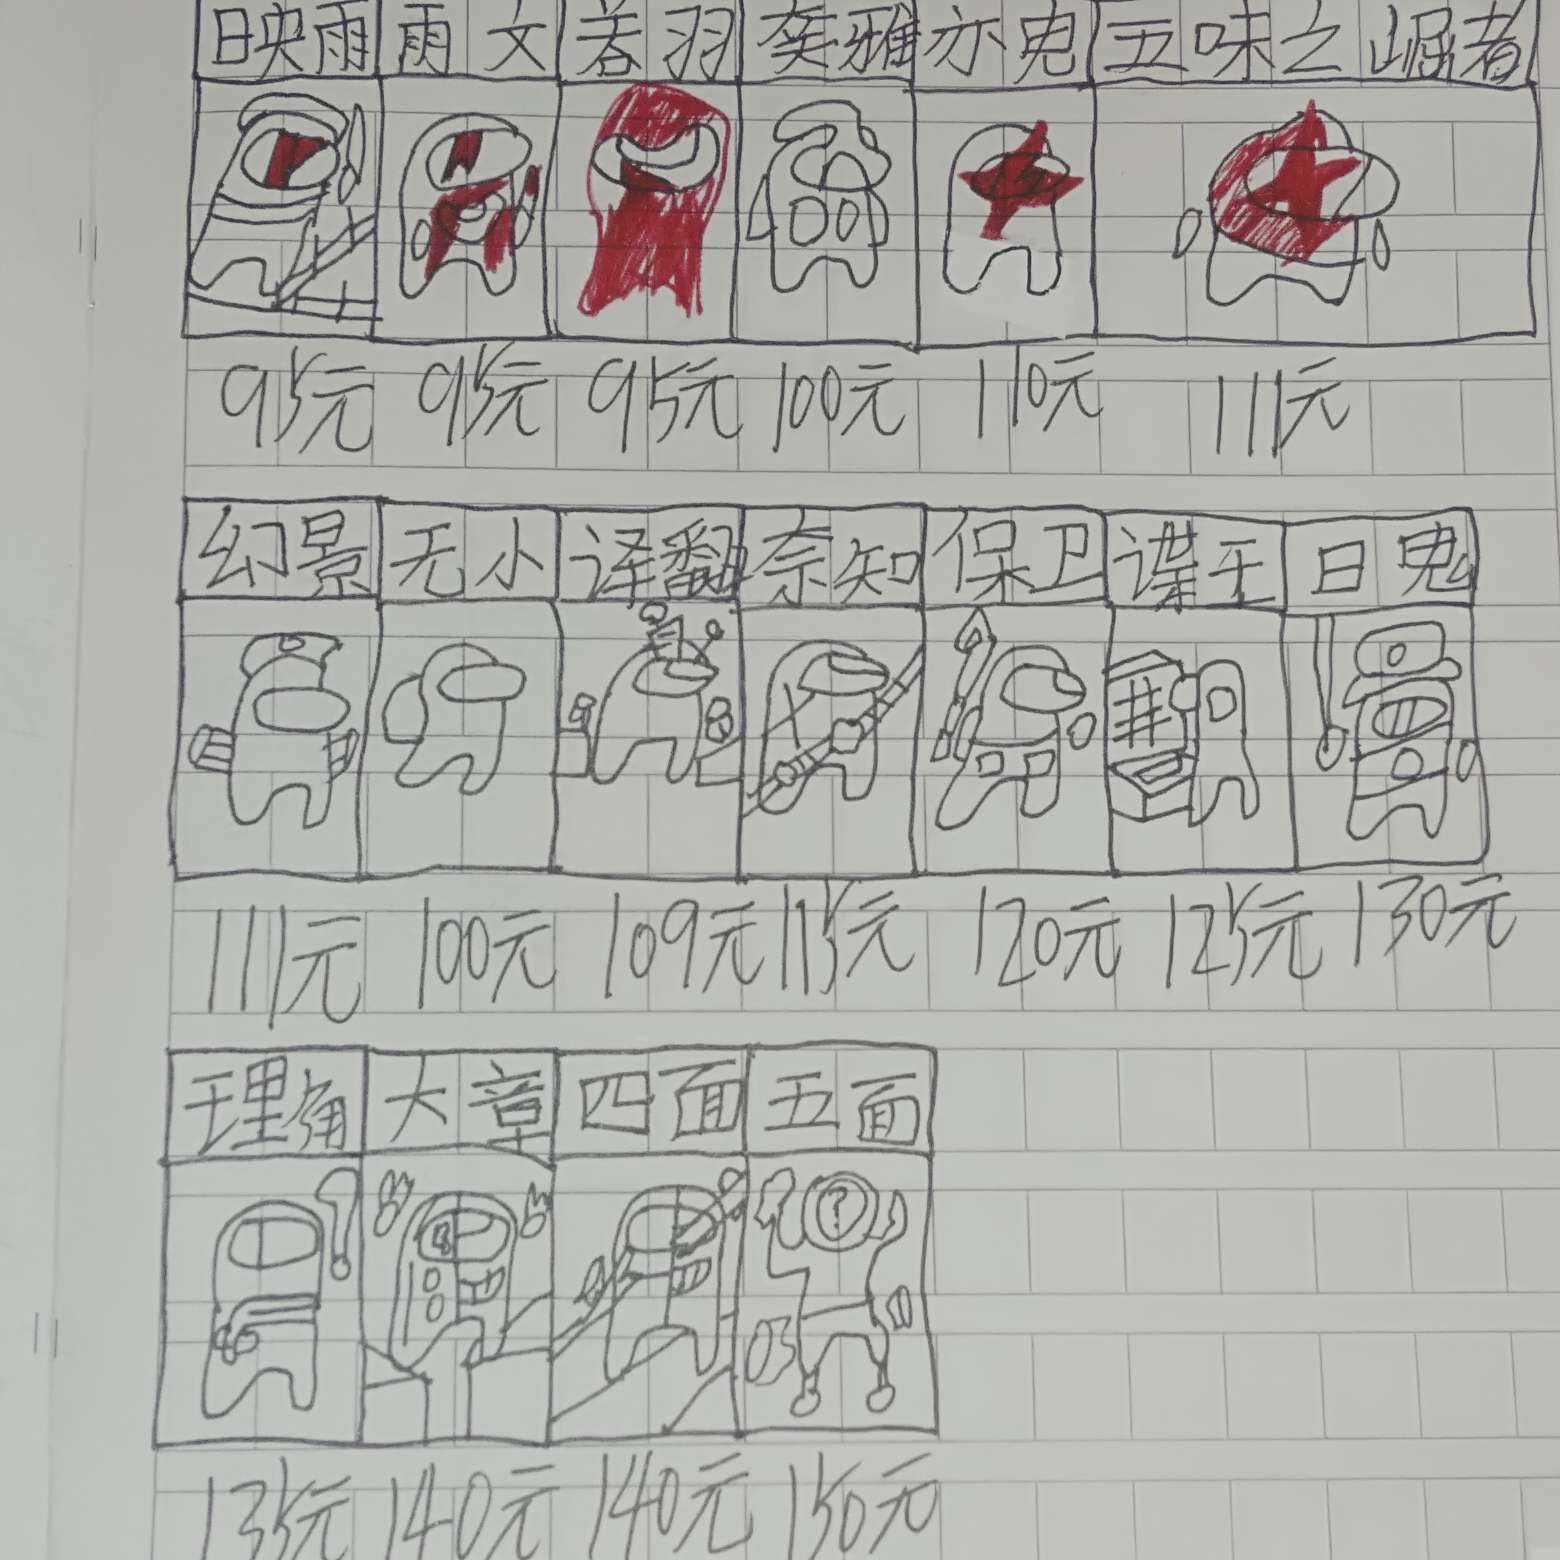 日映雨 雨文 若羽 龚雅 亦鬼 五味之崛者
95元 95元 95元 100元 110元 111元
幻景 无小 译翻 奈知 保卫 谍王 日鬼
111元 100元 109元 115元 120元 125元 130元
理角 大章 四面 五面
?
135元 140元 140元 150元